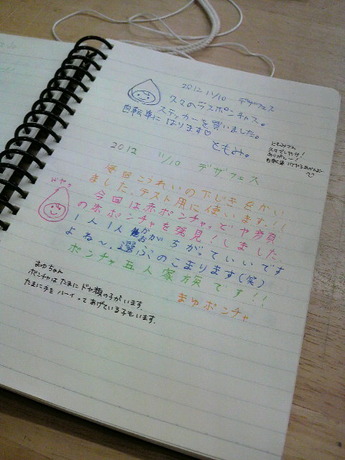 2012 11/10 デザフェス
久々のラスポンチャス。
ステッカーを買いました。
自転車にはります♡
ともみ。
ともみさん
2012 11/10 デザフェス
毎回こうれいの下じきをかい
ました。テスト用に使います!!
今回は赤ポンチャと、ドヤ顔
の赤ポンチャを発見!しました
1人1人かおがちがっていいです
よね〜、選ぶのこまります(笑)
ポンチャ五人家族です!!
まゆポンチャ
ドヤッ
まゆちゃん
ポンチャはたまにドヤ顔の子がいます。
たまに手をハーイってあげている子もいます。